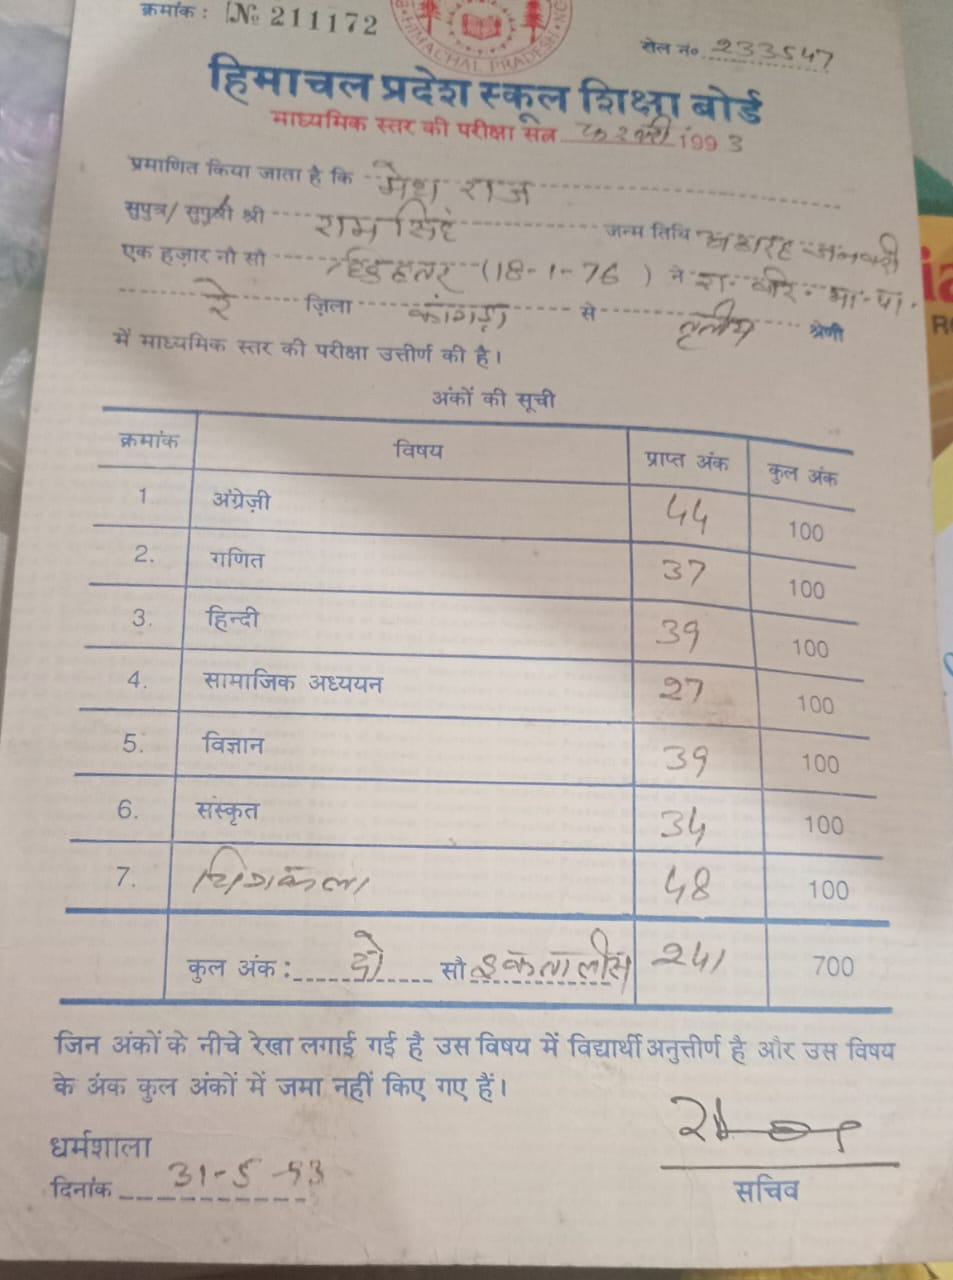 क्रमांक : № 211172
HIMACHAL PRADESH
रोल नं० 233547
हिमाचल प्रदेश स्कूल शिक्षा बोर्ड
माध्यमिक स्तर की परीक्षा सत्र फरवरी 1993
प्रमाणित किया जाता है कि राज
सुपुत्र/सुपुत्री श्री राम सिंह जन्म तिथि अठारह जनवरी
एक हज़ार नौ सौ छिहत्तर (18-1-76) ने रा॰
रे ज़िला कांगड़ा से तृतीय श्रेणी
में माध्यमिक स्तर की परीक्षा उत्तीर्ण की है।
अंकों की सूची
क्रमांक विषय प्राप्त अंक कुल अंक
1. अंग्रेज़ी 44 100
2. गणित 37 100
3. हिन्दी 39 100
4. सामाजिक अध्ययन 27 100
5. विज्ञान 39 100
6. संस्कृत 34 100
7. चित्रकला 48 100
कुल अंक : दो सौ इकतालीस 241 700
जिन अंकों के नीचे रेखा लगाई गई है उस विषय में विद्यार्थी अनुत्तीर्ण है और उस विषय
के अंक कुल अंकों में जमा नहीं किए गए हैं।
धर्मशाला
दिनांक 31-5-93
सचिव